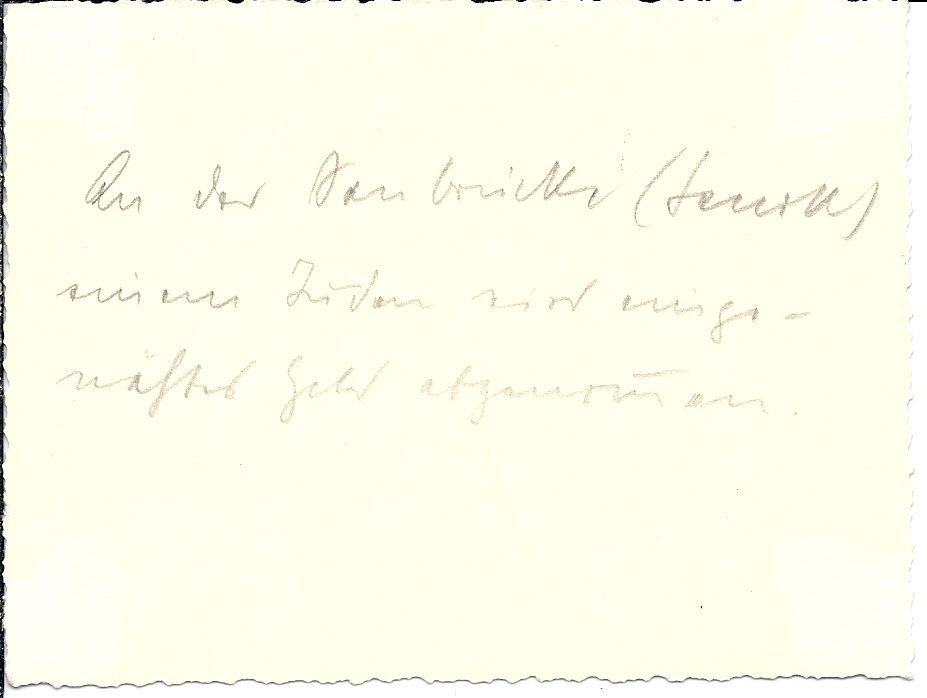 An der Sanbrücke (Sanok)
einem Juden wird einge-
nähtes Geld abgenommen.